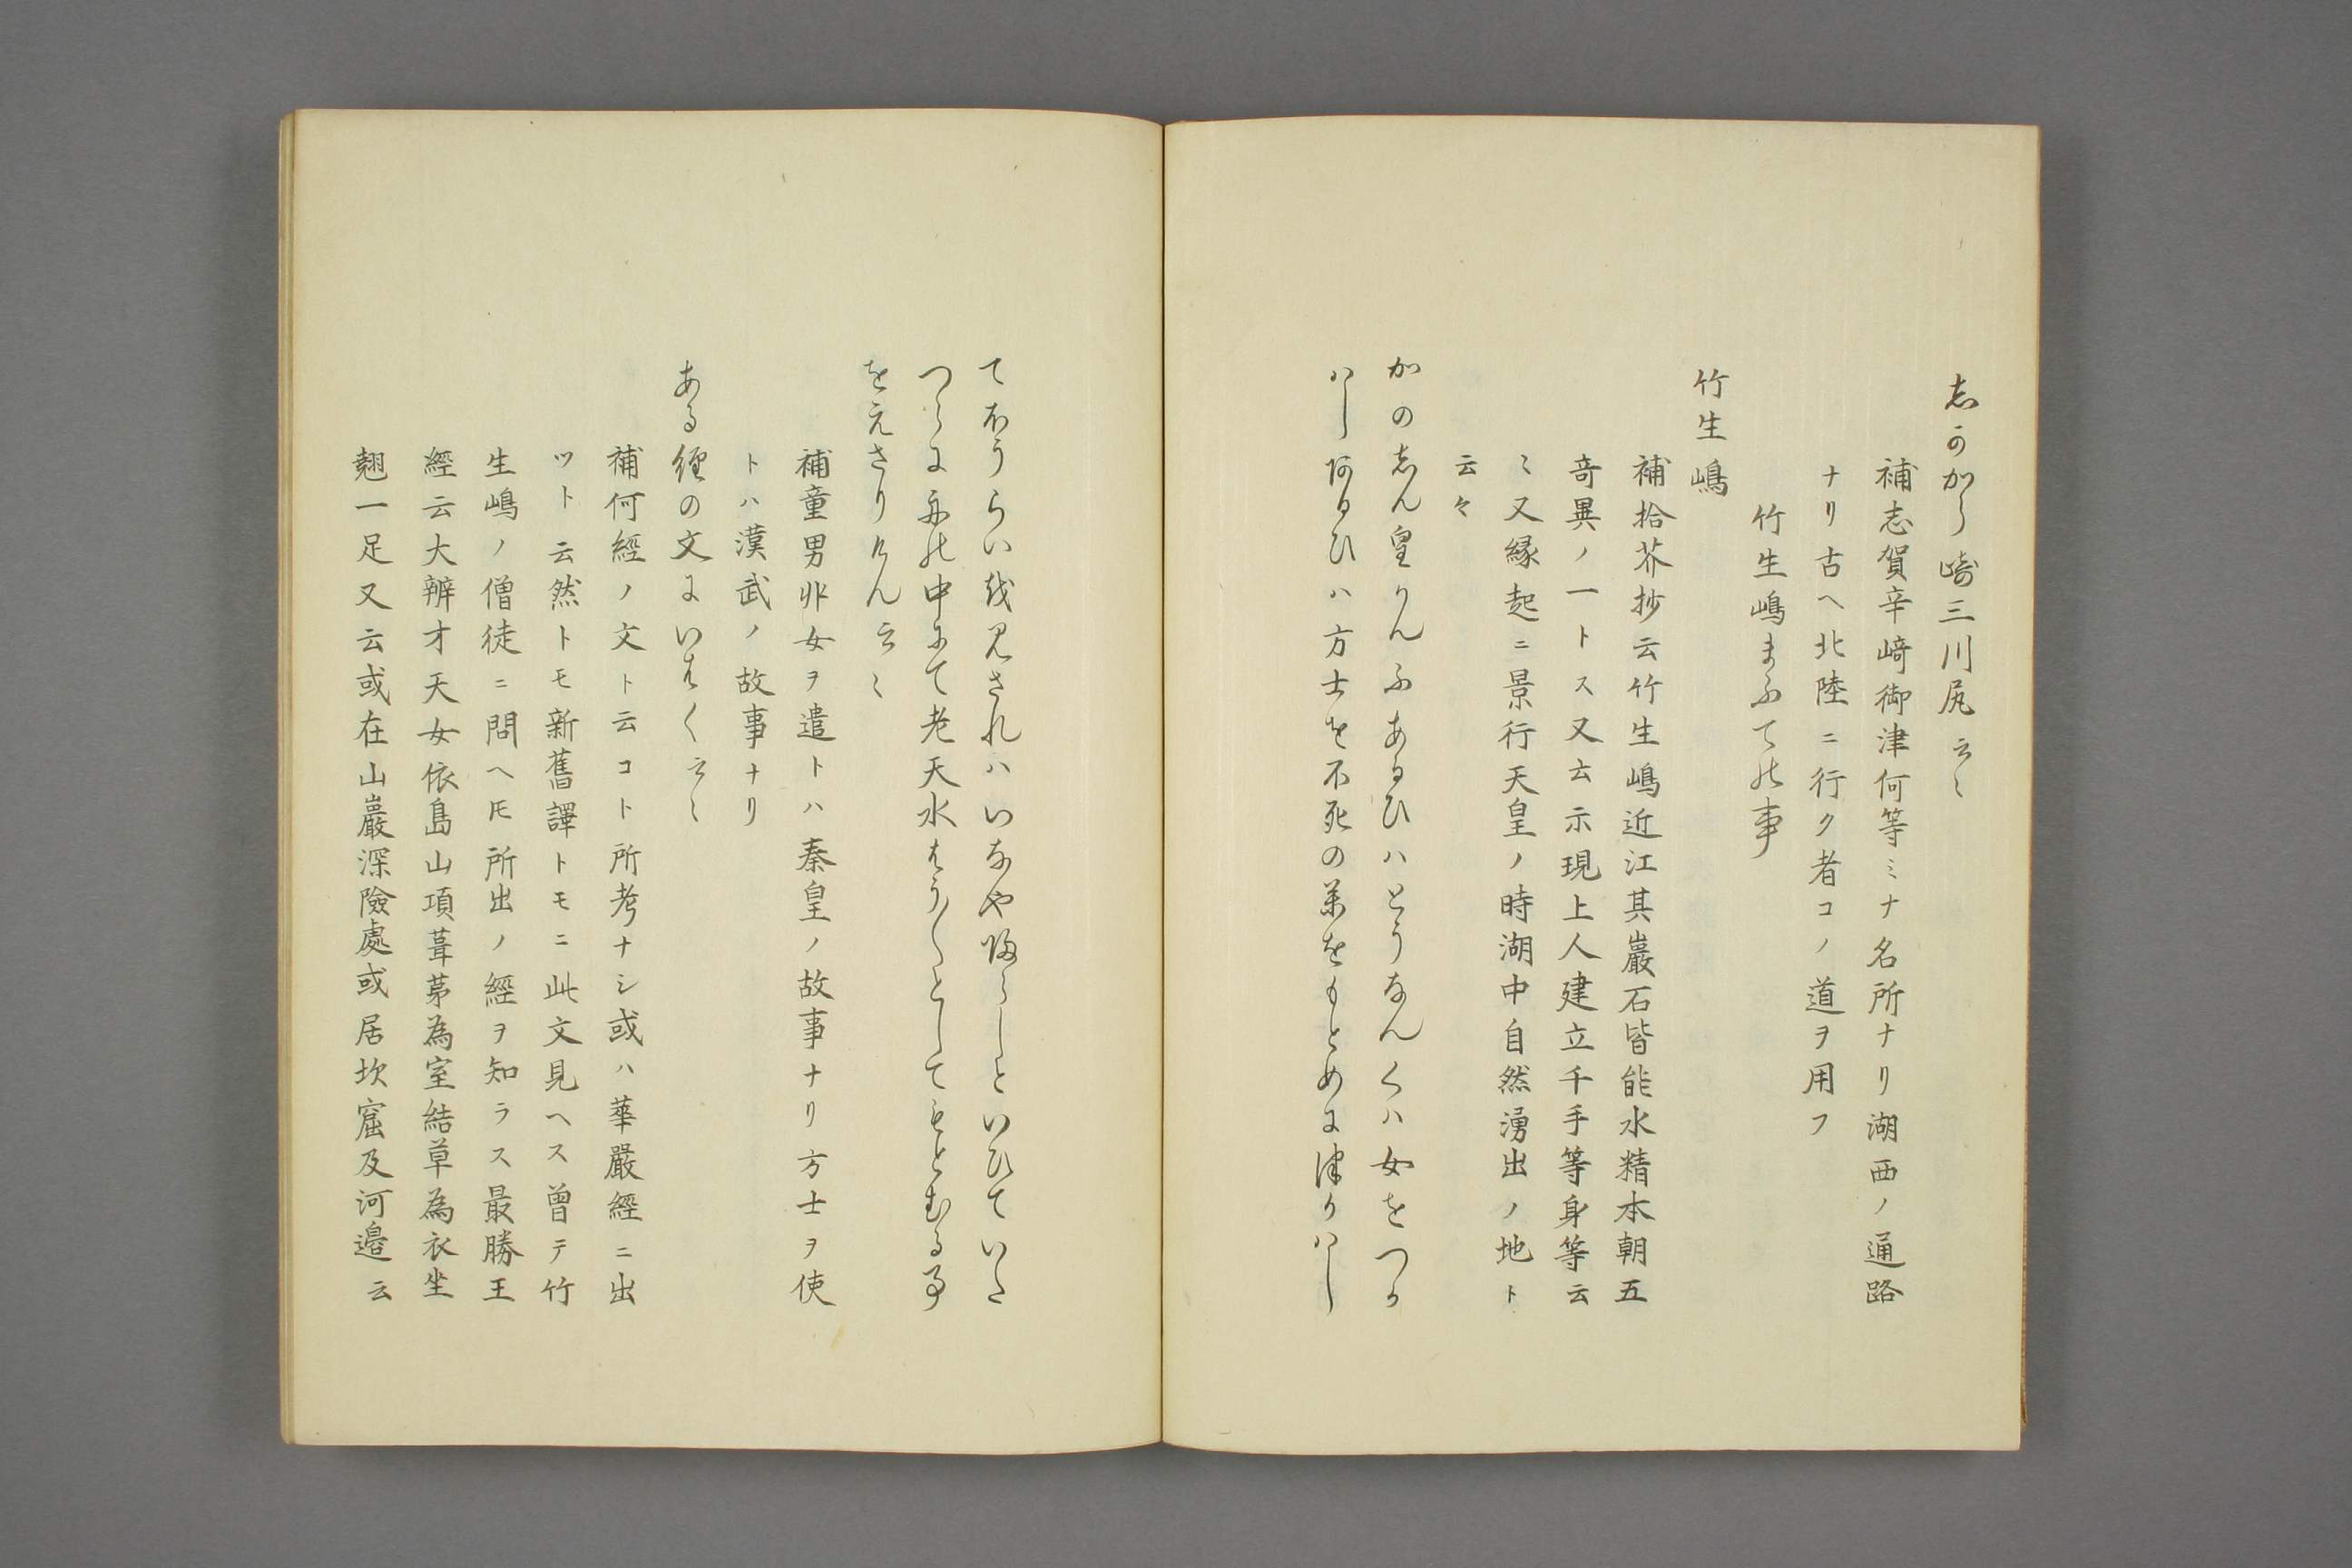 志かから崎三川尻云〻
補志賀辛﨑御津何等ミナ名所ナリ湖西ノ通路
ナリ古ヘ北陸ニ行ク者コノ道ヲ用フ
竹生嶋まふての事
竹生嶋
補拾芥抄云竹生嶋近江其巖石皆能水精本朝五
奇異ノ一トス又云示現上人建立千手等身等云
〻又縁起ニ景行天皇ノ時湖中自然湧出ノ地ト
云々
かのしん皇かんふあるひハとうなんくハ女をつか
ハし或るひハ方士を不死の薬をもとめに津かハし
てほうらいを見されハいなや帰らしといひていた
つらに舟の中にて老天水はう〱としてもとむる事
をえさりけん云〻
補童男丱女ヲ遣トハ秦皇ノ故事ナリ方士ヲ使
トハ漢武ノ故事ナリ
ある経の文にいはく云〻
補何經ノ文ト云コト所考ナシ或ハ華嚴經ニ出
ツト云然トモ新舊譯トモニ此文見ヘス曾テ竹
生嶋ノ僧徒ニ問ヘ𪜈所出ノ經ヲ知ラス最勝王
經云大辨才天女依島山項葺茅為室結草為衣坐
翹一足又云或在山巖深險處或居坎窟及河邉云